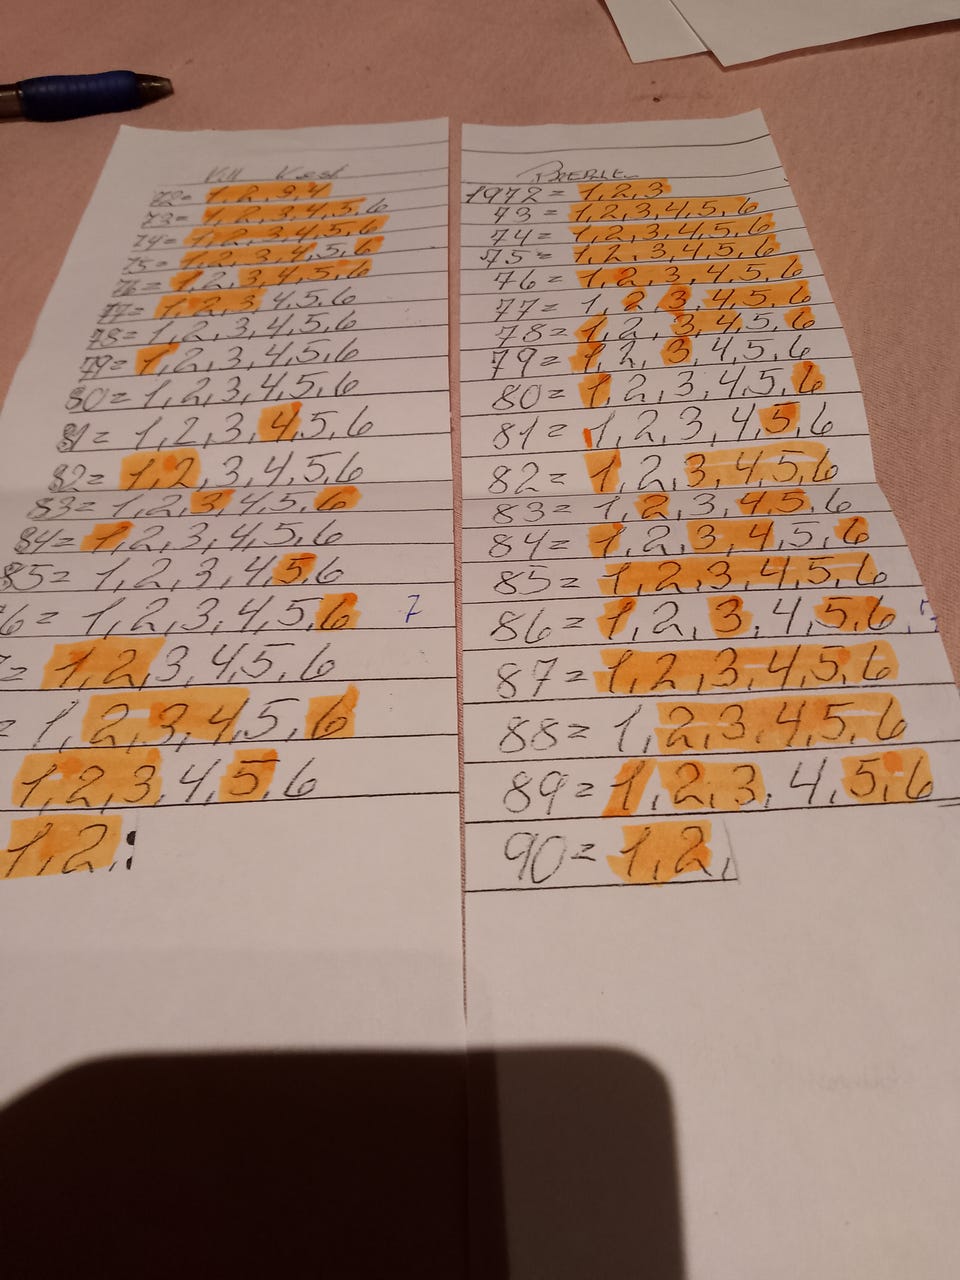 Vill Vest
72= 1,2,3,4
73= 1,2,3,4,5,6
74= 1,2,3,4,5,6
75= 1,2,3,4,5,6
76= 1,2,3,4,5,6
77= 1,2,3,4,5,6
78= 1,2,3,4,5,6
79= 1,2,3,4,5,6
80= 1,2,3,4,5,6
81= 1,2,3,4,5,6
82= 1,2,3,4,5,6
83= 1,2,3,4,5,6
84= 1,2,3,4,5,6
85= 1,2,3,4,5,6
6= 1,2,3,4,5,6 7
= 1,2,3,4,5,6
= 1,2,3,4,5,6
1,2,3,4,5,6
1,2,
1972= 1,2,3
73= 1,2,3,4,5,6
74= 1,2,3,4,5,6
75= 1,2,3,4,5,6
76= 1,2,3,4,5,6
77= 1,2,3,4,5,6
78= 1,2,3,4,5,6
79= 1,2,3,4,5,6
80= 1,2,3,4,5,6
81= 1,2,3,4,5,6
82= 1,2,3,4,5,6
83= 1,2,3,4,5,6
84= 1,2,3,4,5,6
85= 1,2,3,4,5,6
86= 1,2,3,4,5,6,
87= 1,2,3,4,5,6
88= 1,2,3,4,5,6
89= 1,2,3,4,5,6
90= 1,2,